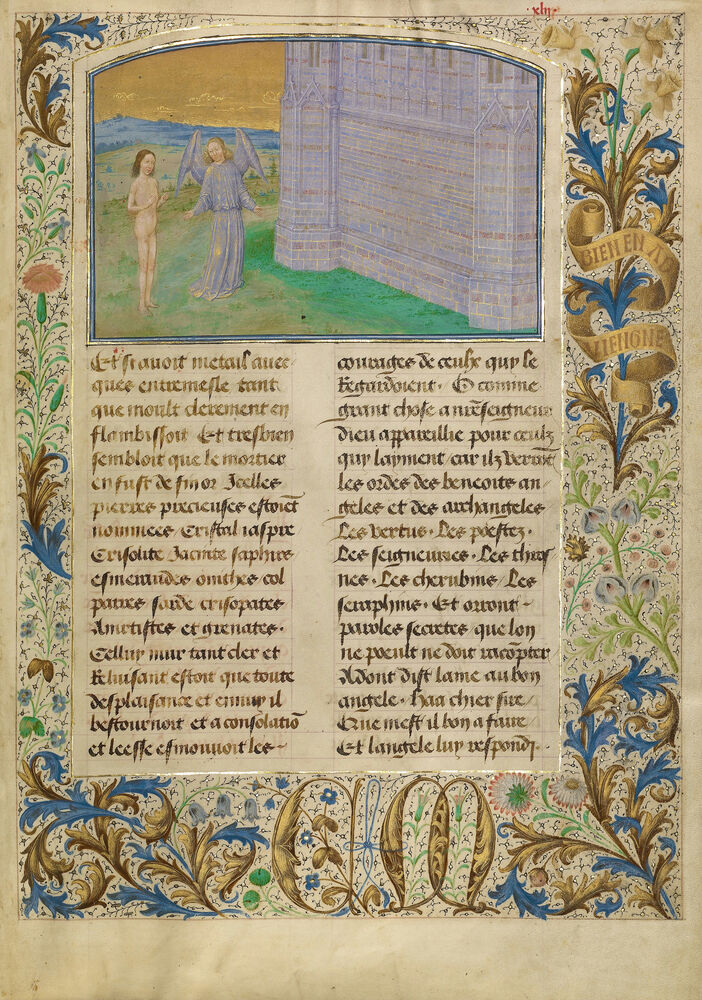 xliii
BIEN EN A
VIENGNE
Et si avoit metail avec
ques entremesle tant
que moult clerement en
flambissoit Et tresbien
sembloit que le mortier
en fust de fin or Icelles
pierres precieuses estoiēt
nommees Cristal iaspre
Crisolite Jacinte saphirs
esmeraudes oniches col
patres sarde crisopates
Ametistes et grenates.
Celluy mur tant cler et
Reluisant estoit que toute
desplaisance et ennuy il
bestournoit et a consolatiō
et leesse esmouvoit les
courages de ceulx quy le
Regardoient. O comme
grant chose a nreseigneur
dieu appareillie pour ceulz
quy layment car ilz verrōt
les ordes des beneoits an
geles et des archangeles
Les vertus. Les poestez.
Les seigneuries. Les thros
nes. Les cherubins Les
seraphins. Et orront
paroles secretes que lon
ne poeult ne doit racōpter
Adont dist lame au bon
angele. haa chier sire
Que mest il bon a faire
Et langele luy respondi.
CM